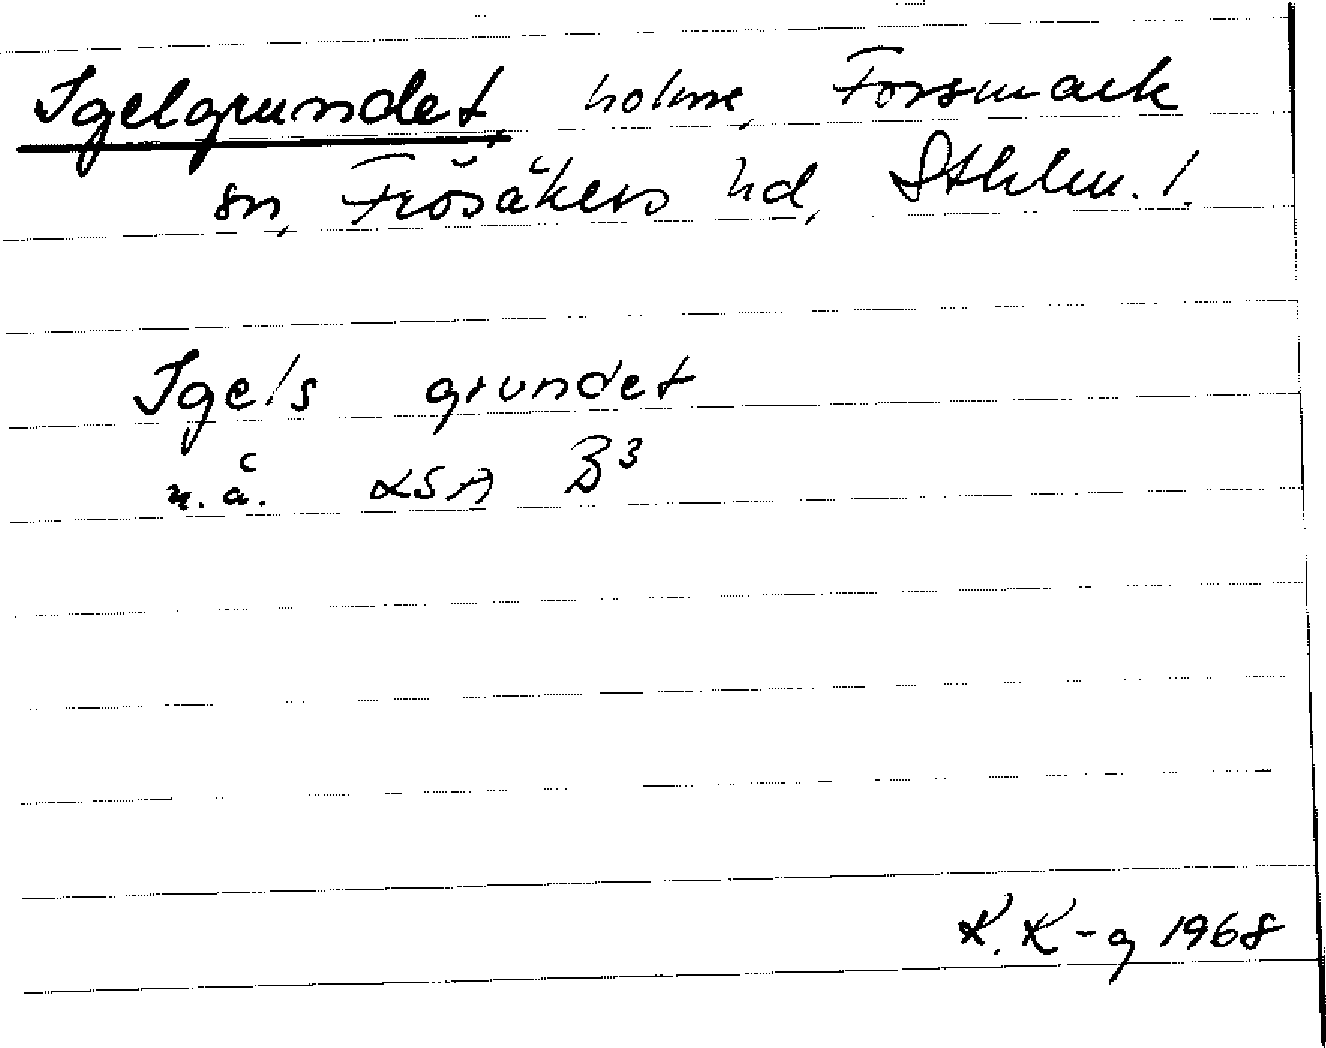 Igelgrundet, holme, Forsmark
sn, Frösåkers hd, Sthlm. l.
Igels grundet
u. å. LSA B3
K. K-g 1968